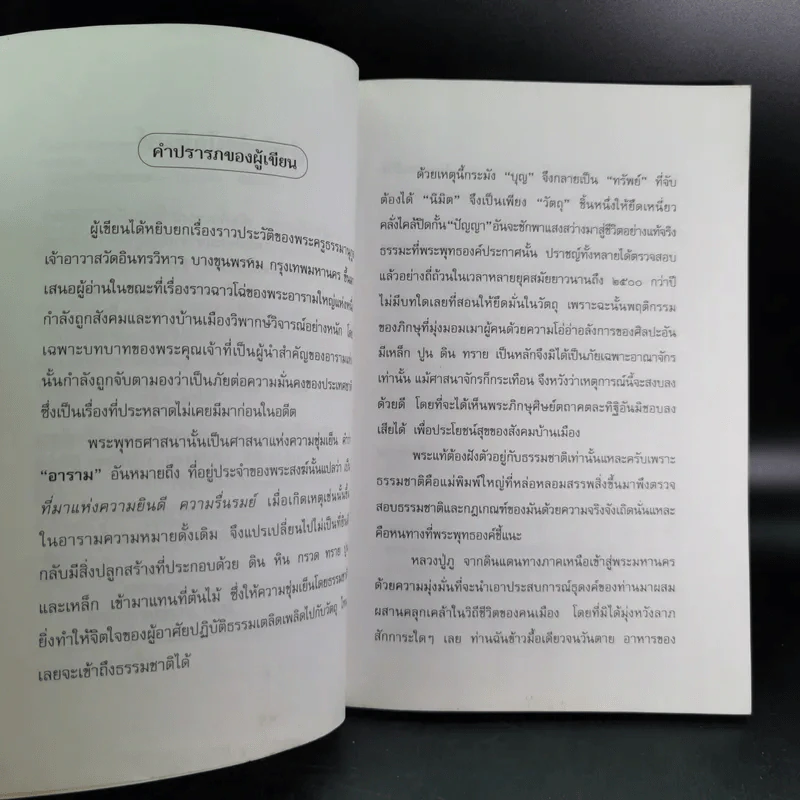 คำปรารภของผู้เขียน
ผู้เขียนได้หยิบยกเรื่องราวประวัติของพระครูธรรมานุกูล
เจ้าอาวาสวัดอินทรวิหาร บางขุนพรหม กรุงเทพมหานคร
เสนอผู้อ่านในขณะที่เรื่องราวฉาวโฉ่ของพระอารามใหญ่แห่งหนึ่ง
กำลังถูกสังคมและทางบ้านเมืองวิพากษ์วิจารณ์อย่างหนัก โดย
เฉพาะบทบาทของพระคุณเจ้าที่เป็นผู้นำสำคัญของอาราม
นั้นกำลังถูกจับตามองว่าเป็นภัยต่อความมั่นคงของประเทศชาติ
ซึ่งเป็นเรื่องที่ประหลาดไม่เคยมีมาก่อนในอดีต
พระพุทธศาสนานั้นเป็นศาสนาแห่งความชุ่มเย็น
“อาราม” อันหมายถึง ที่อยู่ประจำของพระสงฆ์นั้นแปลว่า
ที่มาแห่งความยินดี ความรื่นรมย์ เมื่อเกิดเหตุเช่นนั้น
ในอารามความหมายดั้งเดิม จึงแปรเปลี่ยนไปไม่เป็นที่
กลับมีสิ่งปลูกสร้างที่ประกอบด้วย ดิน หิน กรวด ทราย ปูน
และเหล็ก เข้ามาแทนที่ต้นไม้ ซึ่งให้ความชุ่มเย็นโดยธรรมชาติ
ยิ่งทำให้จิตใจของผู้อาศัยปฏิบัติธรรมเตลิดเพลิดไปกับวัตถุ
เลยจะเข้าถึงธรรมชาติได้
ด้วยเหตุนี้กระมัง “บุญ” จึงกลายเป็น “ทรัพย์” ที่จับ
ต้องได้ “นิมิต” จึงเป็นเพียง “วัตถุ” ชิ้นหนึ่งให้ยึดเหนี่ยว
คลั่งไคล้ปิดกั้น “ปัญญา” อันจะชักพาแสงสว่างมาสู่ชีวิตอย่างแท้จริง
ธรรมะที่พระพุทธองค์ประกาศนั้น ปราชญ์ทั้งหลายได้ตรวจสอบ
แล้วอย่างถี่ถ้วนในเวลาหลายยุคสมัยยาวนานถึง ๒๕๐๐ กว่าปี
ไม่มีบทใดเลยที่สอนให้ยึดมั่นในวัตถุ เพราะฉะนั้นพฤติกรรม
ของภิกษุที่มุ่งมอมเมาผู้คนด้วยความโอ่อ่าอลังการของศิลปะอัน
มีเหล็ก ปูน ดิน ทราย เป็นหลักจึงมิได้เป็นภัยเฉพาะอาณาจักร
เท่านั้น แม้ศาสนาจักรก็กระเทือน จึงหวังว่าเหตุการณ์นี้จะสงบลง
ด้วยดี โดยที่จะได้เห็นพระภิกษุศิษย์ตถาคตละทิฐิอันมิชอบลง
เสียได้ เพื่อประโยชน์สุขของสังคมบ้านเมือง
พระแท้ต้องฝังตัวอยู่กับธรรมชาติเท่านั้นแหละครับเพราะ
ธรรมชาติคือแม่พิมพ์ใหญ่ที่หล่อหลอมสรรพสิ่งขึ้นมาพึงตรวจ
สอบธรรมชาติและกฎเกณฑ์ของมันด้วยความจริงจังเถิดนั่นแหละ
คือหนทางที่พระพุทธองค์ชี้แนะ
หลวงปู่ภู จากดินแดนทางภาคเหนือเข้าสู่พระมหานคร
ด้วยความมุ่งมั่นที่จะนำเอาประสบการณ์ธุดงค์ของท่านมาผสม
ผสานคลุกเคล้าในวิถีชีวิตของคนเมือง โดยที่มิได้มุ่งหวังลาภ
สักการะใดๆ เลย ท่านฉันข้าวมื้อเดียวจนวันตาย อาหารของ